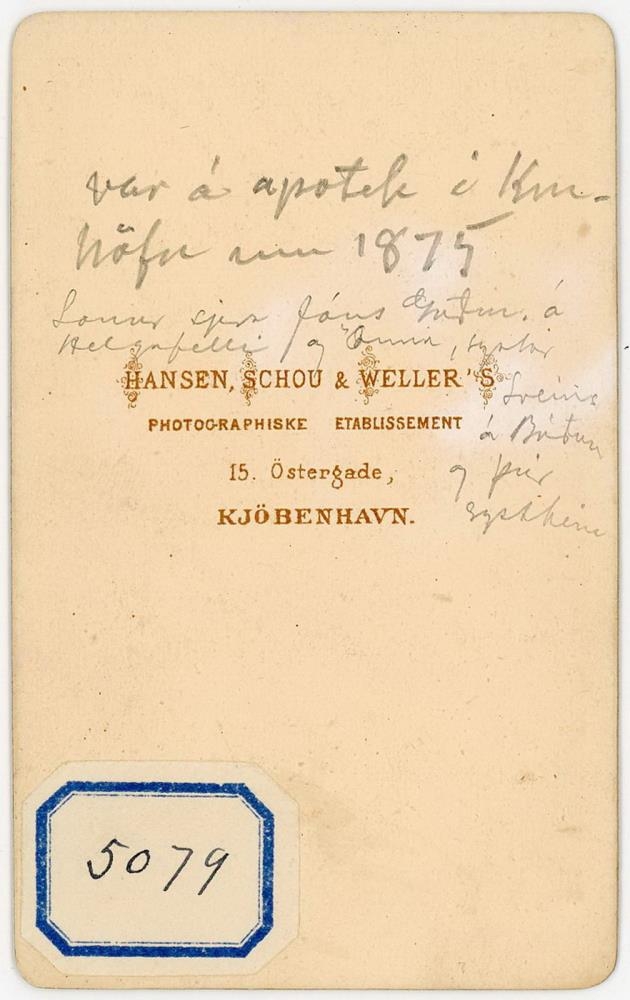 var á apotek i Km-
höfn um 1875
Sonur sjera Jóns Guðm. á
Helgafelli og Önnu, systir
HANSEN, SCHOU & WELLER'S
Sveins
PHOTOGRAPHISKE ETABLISSEMENT
á Búðum
15. Östergade,
og þeir
KJÖBENHAVN.
systkin
5079